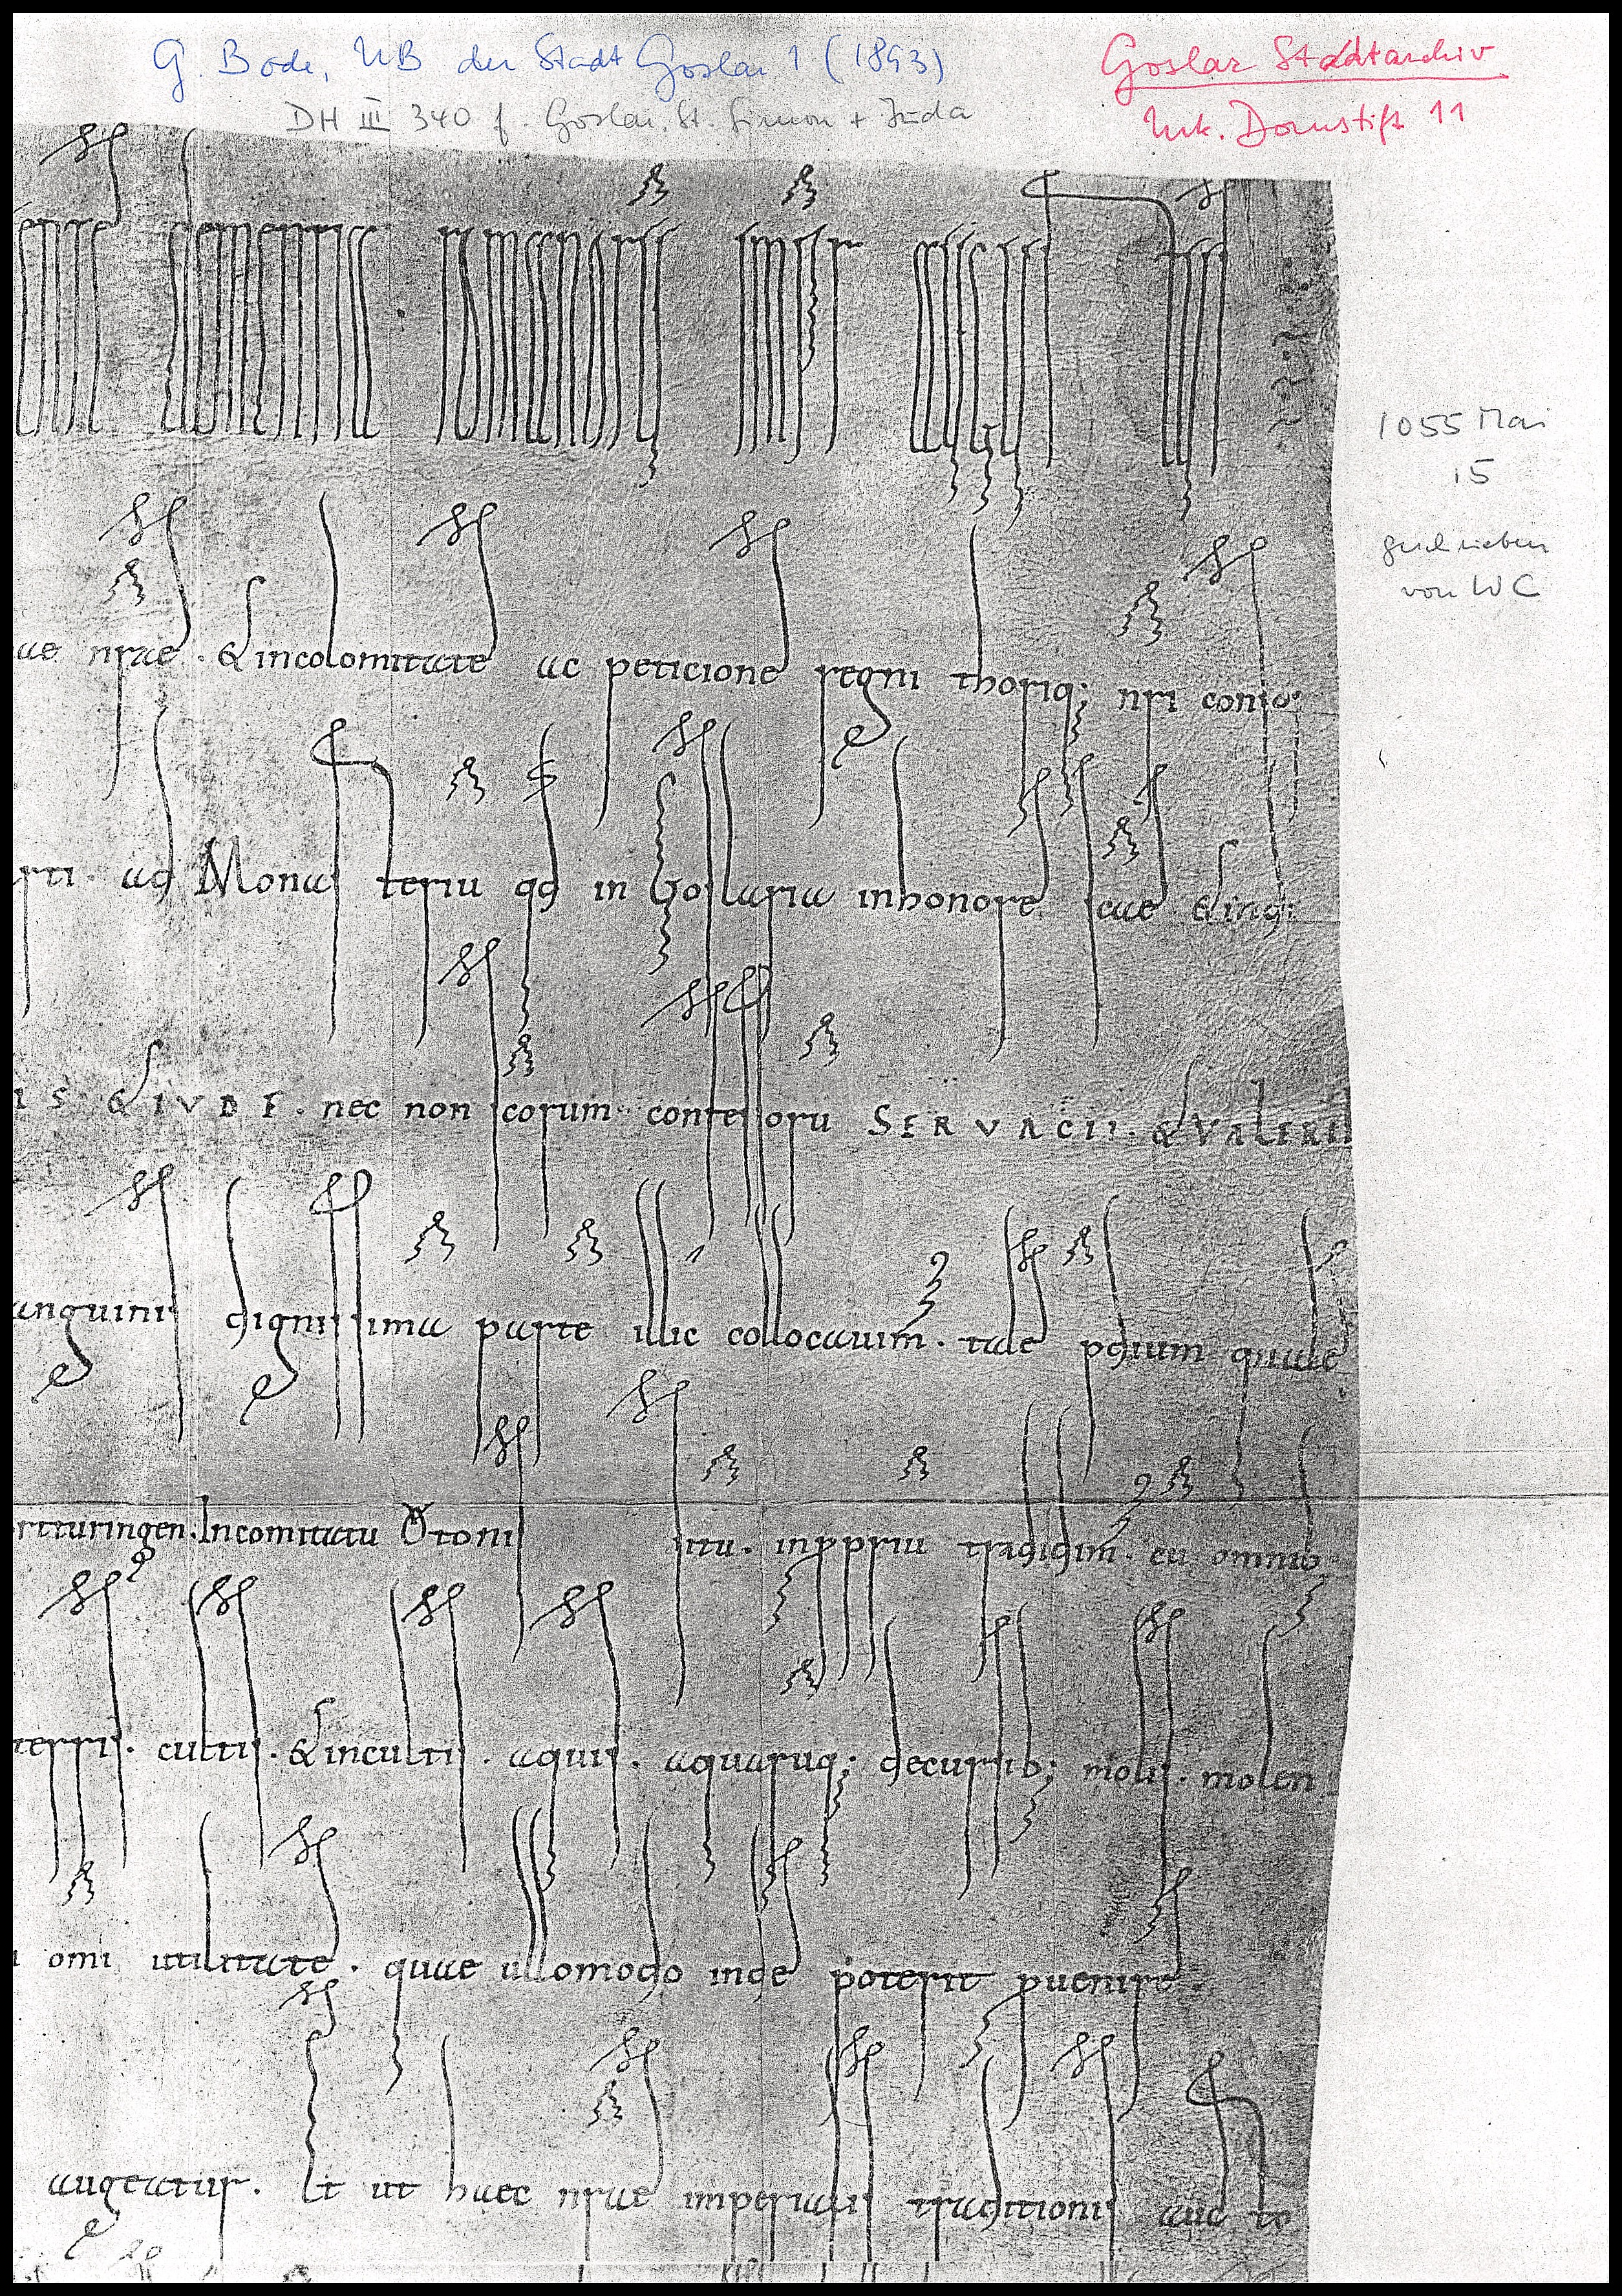 G. Bode, UB der Stadt Goslar 1 (1893)
Goslar Stadtarchiv
DH III 340 f Goslar, St. Simon + Juda
Urk. Domstift 11
clementia romanorum
1055 Mai
15
geschrieben
von WC
ae nrae . & incolomitate ac peticione regni thoriq; nri
ad Monasteriu qd in Goslaria in honore scae &
IS & IVDE . nec non scorum confessoru SERVACII . & VALERII
anguinis dignissima parte illic collocauim . tale pdium quale
turingen . In comitatu Ottonis situ . in ppriu tradidim . cu
terris . cultis . & incultis . aquis . aquaruq; decursib; molis . molen
omi utilitate . quae ullomodo inde poterit puenire .
augeatur . Et ut haec nrae imperialis traditionis